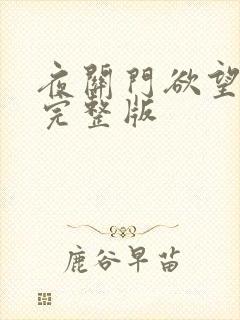 夜關門欲望
完整版
鹿谷早苗